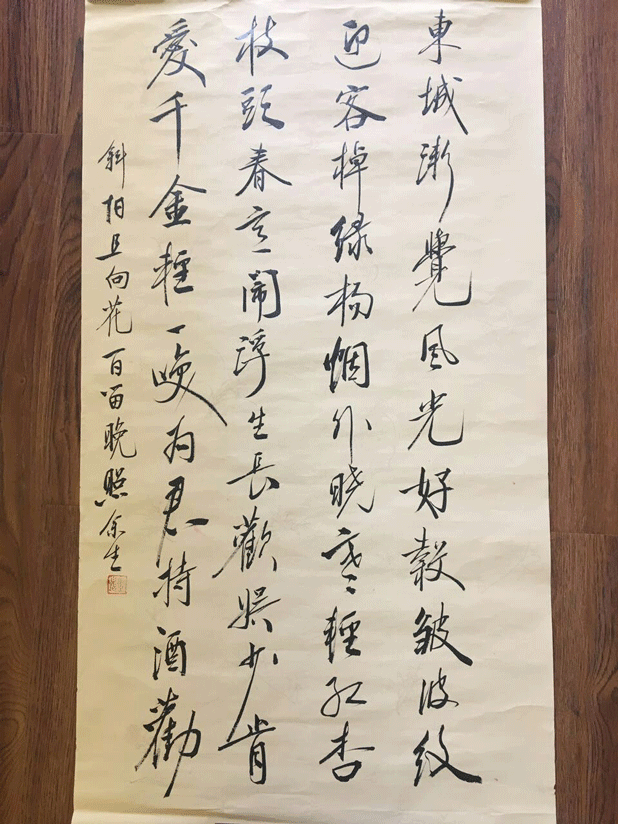 東城漸覺風光好縠皺波紋
迎客棹绿杨烟外晓寒輕红杏
枝頭春意鬧浮生長歡娛少肯
愛千金輕一咲为君持酒勸
斜阳且向花间留晚照余生